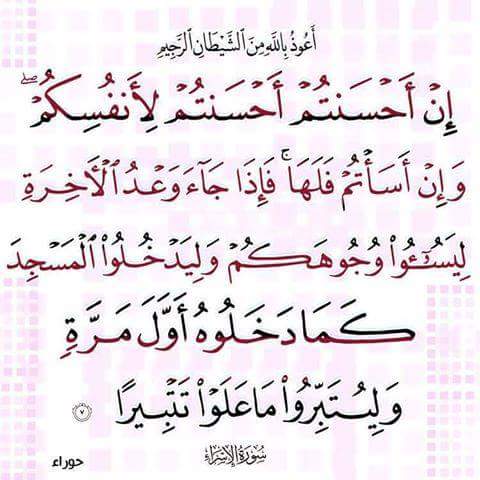 أَعُوذُ بِاللَّهِ مِنَ الشَّيْطَانِ الرَّجِيمِ
إِنْ أَحْسَنتُمْ أَحْسَنتُمْ لِأَنفُسِكُمْ ۖ
وَإِنْ أَسَأْتُمْ فَلَهَا ۚ فَإِذَا جَآءَ وَعْدُ ٱلْأَخِرَةِ
لِيَسُـُٔوا۟ وُجُوهَكُمْ وَلِيَدْخُلُوا۟ ٱلْمَسْجِدَ
كَمَا دَخَلُوهُ أَوَّلَ مَرَّةٍ
وَلِيُتَبِّرُوا۟ مَا عَلَوْا۟ تَتْبِيرًا ٧
سُورَةُ الإِسْرَاءِ
حوراء